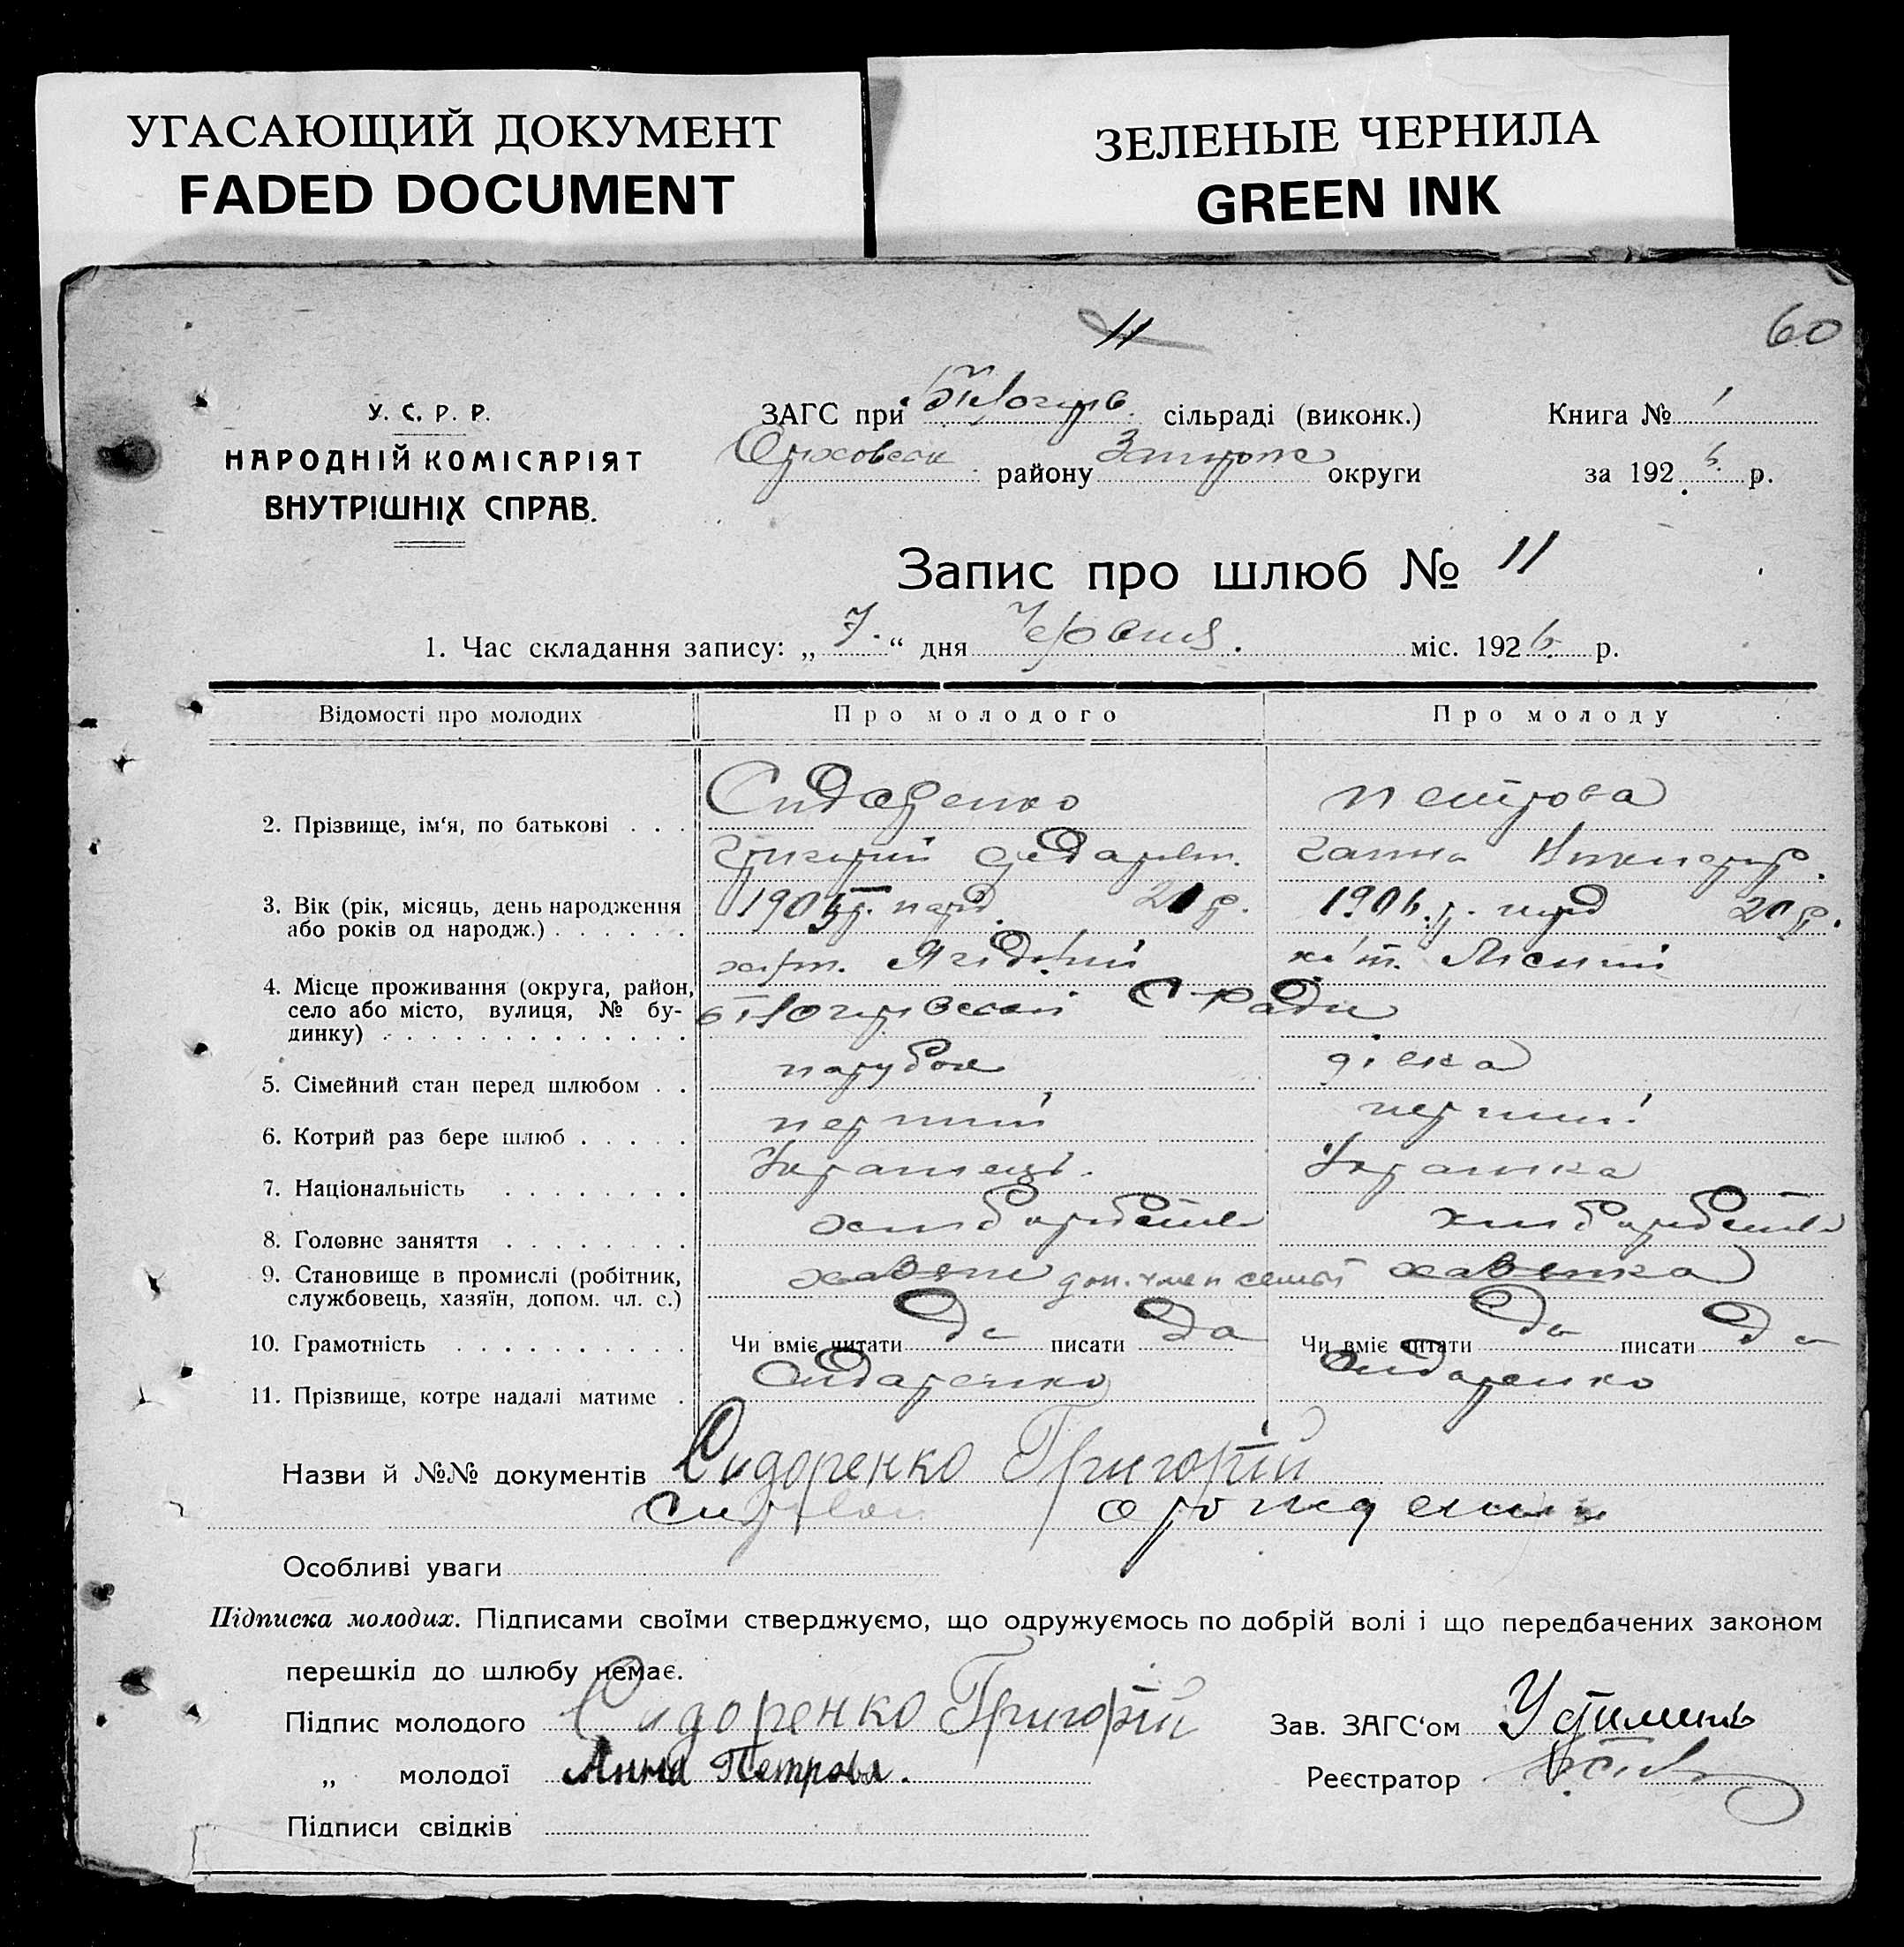 УГАСАЮЩИЙ ДОКУМЕНТ
FADED DOCUMENT
ЗЕЛЕНЫЕ ЧЕРНИЛА
GREEN INK
11
60
У. С. Р. Р.
НАРОДНІЙ КОМІСАРІЯТ
ВНУТРІШНІХ СПРАВ.
ЗАГС при сільраді (виконк.)
району округи
Книга № 1
за 1926 р.
Запис про шлюб № 11
1. Час складання запису: „ 7. “ дня Червня. міс. 1926 р.
Відомості про молодих
Про молодого
Про молоду
2. Прізвище, ім'я, по батькові . . .
Сидаренко
Петрова
Григорий
Ганна
3. Вік (рік, місяць, день народження
або років од народж.) . . . . . .
1905 р. нар. 21 р.
1906. р. нар 20 р.
4. Місце проживання (округа, район,
село або місто, вулиця, № бу-
динку) . . . . . . . . . . . . . .
хут.
хут. Лісний
С-Ради
5. Сімейний стан перед шлюбом . .
парубок
дівка
6. Котрий раз бере шлюб . . . . .
перший
перший
7. Національність . . . . . . . .
Українець.
Українка
8. Головне заняття . . . . . . . .
хлиборобство
хлиборобство
9. Становище в промислі (робітник,
службовець, хазяїн, допом. чл. с.)
доп. член семьи
10. Грамотність . . . . . . . . . .
Чи вміє читати да писати да
Чи вміє читати да писати да
11. Прізвище, котре надалі матиме .
Сидаренко
Сидаренко
Назви й №№ документів Сидоренко Григорій
Особливі уваги
Підписка молодих. Підписами своїми стверджуємо, що одружуємось по добрій волі і що передбачених законом
перешкід до шлюбу немає.
Підпис молодого Сидоренко Григорій
Зав. ЗАГС'ом
„ молодої Анна Петрова.
Реєстратор
Підписи свідків